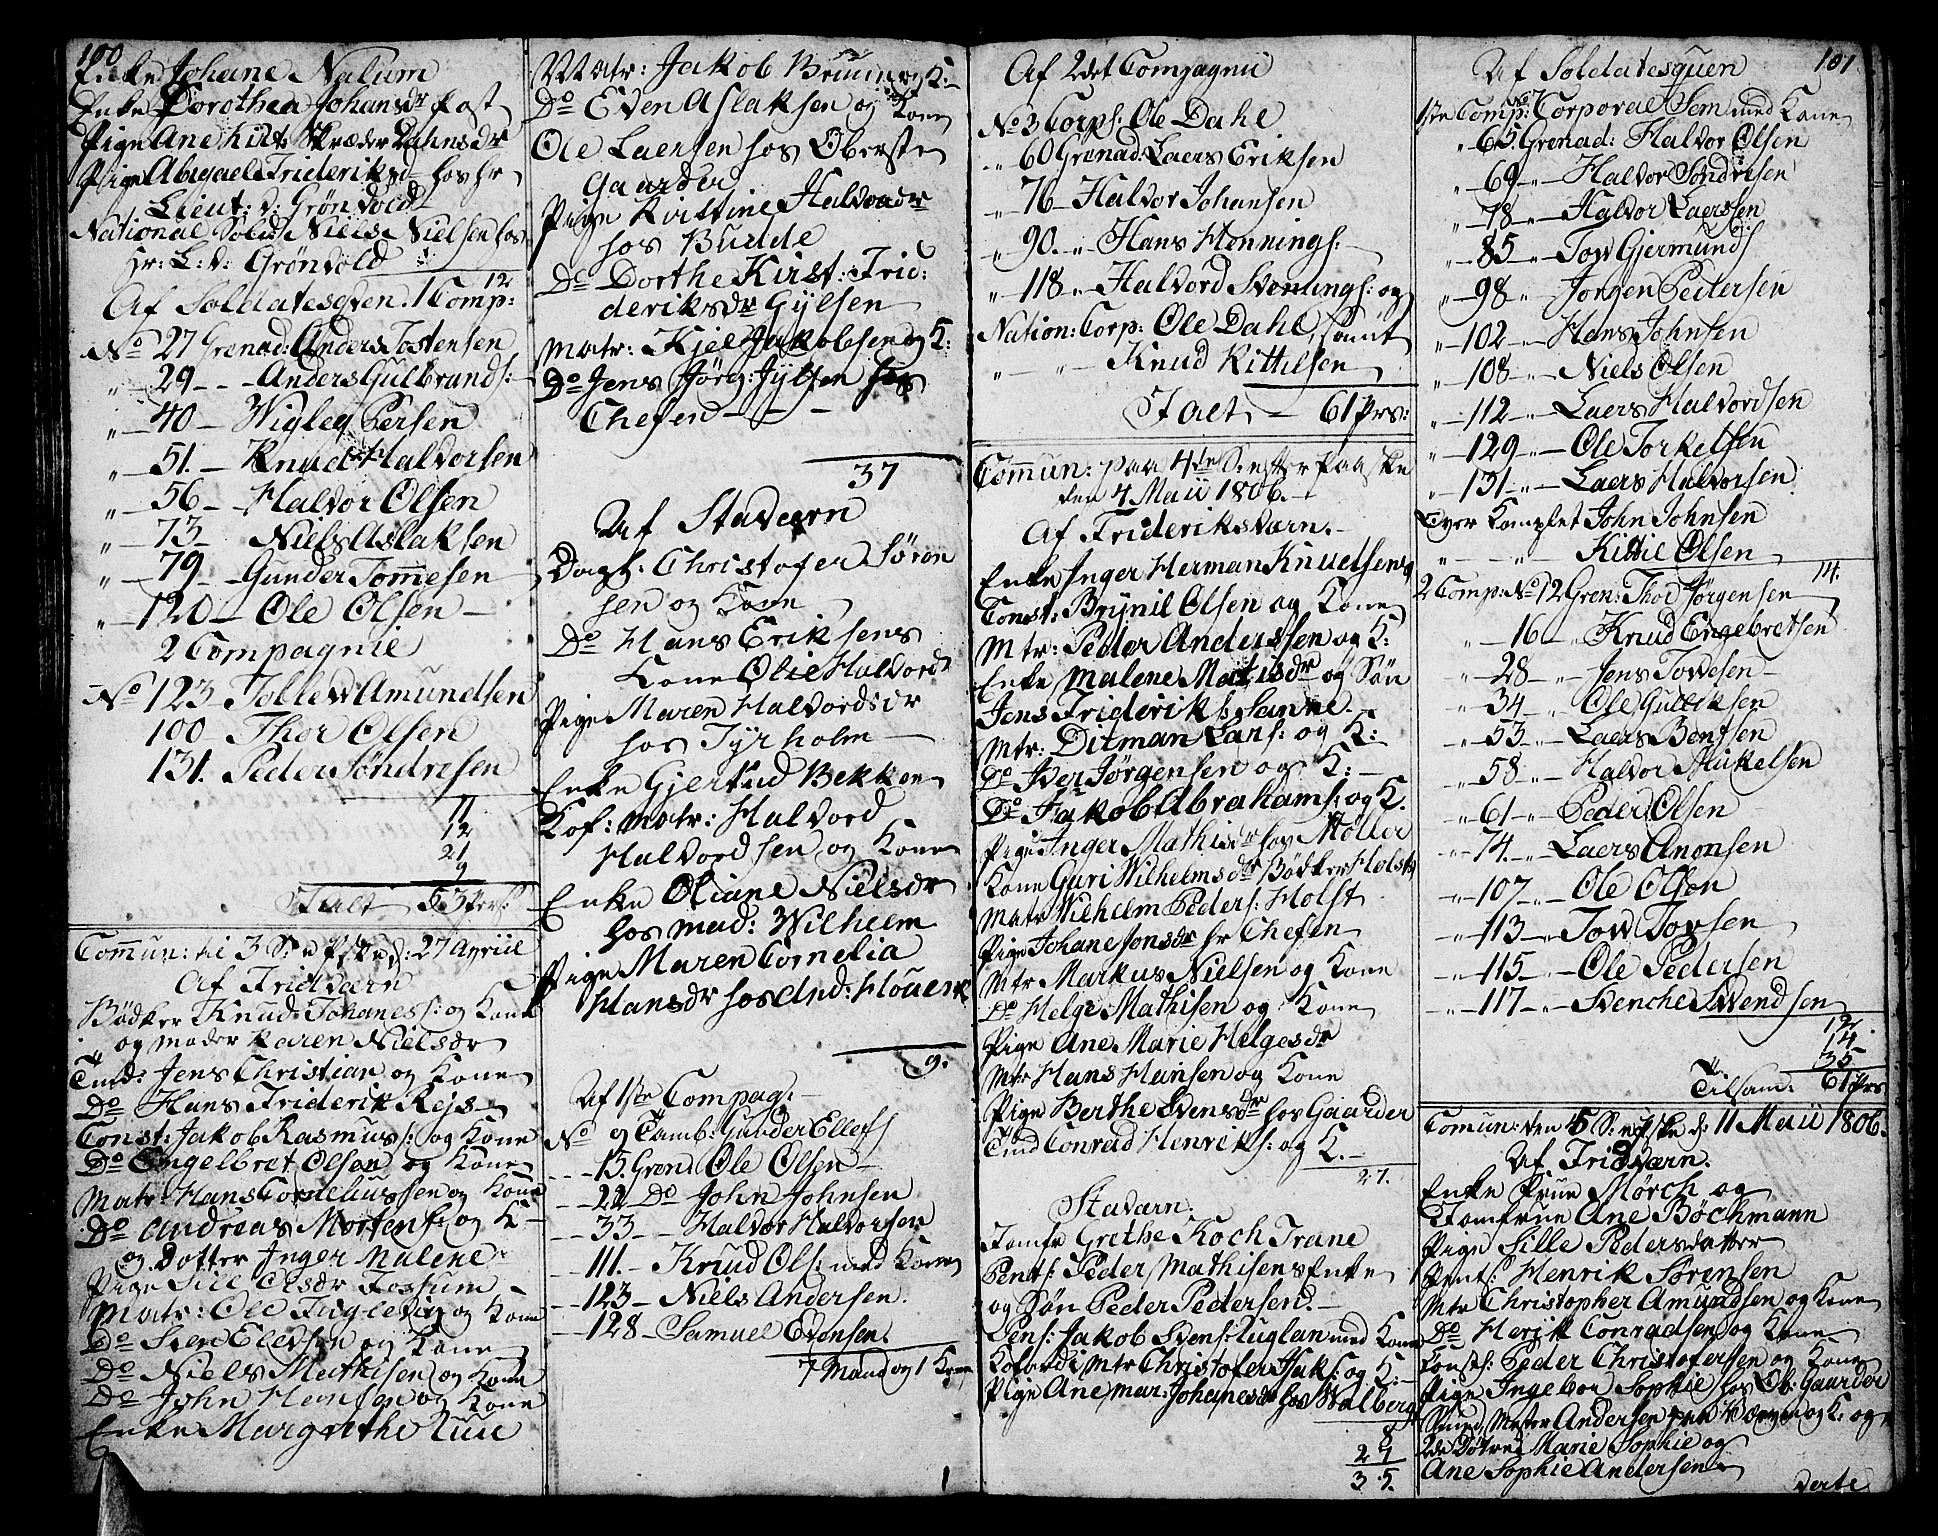 100
Enke Johane Nalum
Enke Dorothea Johansdr Post
Pige Ane Kirt: Skræder Lahnsdr
Pige Abigael Frideriksd hos hr
Lieut: v: Grönvold
National Sold: Niels Nielsen hos
Hr: L: v: Grönvold
12
Af Soldatesqven. 1 Comp:
No 27 Grenad: Anders Tostensen
" 29 - - Anders Gulbrands:
" 40 - Wigleg Persen
" 51. - Knud Halvorsen
" 56 - Halvor Olsen
" 73 - Niels Aslaksen
" 79 - Gunder Tommesen
" 120 - Ole Olsen
2 Compagnie
No 123 - Tollev Amundsen
100 - Thor Olsen
131. Peder Söndresen
11
12
21
9
Italt 53 pers:
Comun: ni 3 S: e Pske d: 27 Apriil
Af Fridværn
Bödker Knud Johaness: og Kone
og moder Karen Nielsdr
Tmd: Jens Christian og Kone
Do Hans Friderik Rejs
Const: Jakob Rasmuss: og Kone
Do Engelbret Olsen og Kone
Matr: Hans Corneliussen og Kone
Do Andreas Mortens: og K
og Dotter Inger Malene
Pige Sill Olsdr Fossum
Matr: Ole Fugleberg og Kone
Do Sven Elevsen og Kone
Do Niels Mathisen og Kone
Do John Hansen og Kone
Enke Margrethe Tuue
Matr: Jakob Bruun og K:
Do Even Aslaksen og Kone
Ole Laersen hos Oberste
Gaarder
Pige Kirstine Halvordr
hos Budde
Do Dorthe Kirst: Frid:
deriksdr Gylsen
Matr: Kjel Jakobsen og K:
Do Jens Jörg: Jylsen hos
Chefen - - -
37
Af Staværn
Dagl: Christofer Sören
sen og Kone
Do Hans Eriksens
Kone Olie Halvordr
Pige Maren Halvordsdr
hos Tyrholm
Enke Gjertrud Bekken
Kof: matr: Halvord
Halvordsen og Kone
Enke Oliane Nielsdr
hos mad: Wilhelm
Pige Maren Cornelia
Hansdr hos And: Houerk
9.
Af 1ste Compag:
No 9 Tamb: Gunder Ellefs
- - 15. Gren. Ole Olsen
- - 22 Do John Johnsen
- - 33 - Halvor Halvorsen
- - 111. - Knud Ols: med Kone
- - 123 - Niels Andersen.
- - 128 - Samuel Evensen.
7 Mand og 1 Kone
1
Af 2det Compagnii
No 3 Corps: Ole Dahl
" 60 Grenad: Laers Eriksen
" 76 - Halvor Johansen
" 90. " Hans Hennings:
" 118 " Halvord Svenings: og
Nation: Corp: Ole Dahl, samt
" " Knud Kittelsen
Italt - 61 Prs:
Comun: paa 4de S: efter Paaske
den 4 Maii 1806.
Af Frideriksværn.
Enke Inger Herman Knudtsens
Const: Brynil Olsen og Kone
Mtr: Peder Anderssen og K:
Enke Malene Matisdr og Sön
Jens Frideriks: Sanne.
Mtr: Ditman Lars: og K:
Do Iver Jörgensen og K:
Do Jakob Abrahams: og K.
Pige Inger Mathisdr hos Möller
Kone Guri Wilhelmsdr Bödker Holst
Matr Wilhelm Peders: Holst
Pige Johane Jonsdr hr Chefen
Mtr Markus Nielsen og Kone
Do Helge Mathisen og Kone
Pige Ane Marie Helgesdr
Mtr Hans Hansen og Kone
Pige Berthe Svensdr hos Gaarder
Tmd Conrad Henriks: og K.
27.
Stavarn.
Jomfr Grethe Koch Trane
Pens: Peder Mathisens Enke
og Sön Peder Pedersen.
Pens: Jakob Svens: Kuglan med Kone
Kofardi Mtr Christofer Isaks: og K:
Pige Ane Mar: Johanesdr hos Walberg
8
27
35.
101
Af Soldatesquen
1ste Comp: No 7 Corporal Sem med Kone
" 65 Grenad: Halvor Olsen
" 69 - " - Halvor Söndresen
" 78 - " - Halvor Laerssen
" 85 - " - Tow Gjermunds
" 98 " - Jörgen Pedersen
" 102 - " - Hans Johnsen
" 108 - " - Niels Olsen
" 112 - " - Laers Halvordsen
" 129 - " - Ole Torkelsen
" 131 - " - Laers Halvorsen.
Over Komplet John Johnsen
" " Kittil Olsen
14.
2 Comp: No 12 Gren: Thor Jörgensen
" 16 - " Knud Engebretsen
" 28 - " Jens Towesen
" 34 " Ole Gulliksen
" 53 - " - Laers Bentsen
" 58 " - Halvor Mikelsen
" 61 - " - Peder Olsen
" 74. - " - Laers Anonsen
" 107 - " - Ole Olsen
" 113 - " - Tow Torsen
" 115 - " - Ole Pedersen
" 117 - " - Svenche Svendsen
12.
14
35
Tilsam: 61 Prs
Comun: den 5 S: e Pske d: 11 Maii 1806.
Af Fridværn.
Enke Frue Mörch og
Jomfrue Ane Böckmann
Pige Sille Pedersdatter
Pens: Henrik Sörensen
Mtr Christopher Amundsen og Kone
Do Herik Conradsen og Kone
Const: Peder Christofersen og Kone
Pige Ingebor Sophie hos Ob: Gaarder
Smed Mester Andersen paa Værven og K: og
2de Dötre Marie Sophie og
Ane Sophie Andersen
Derte